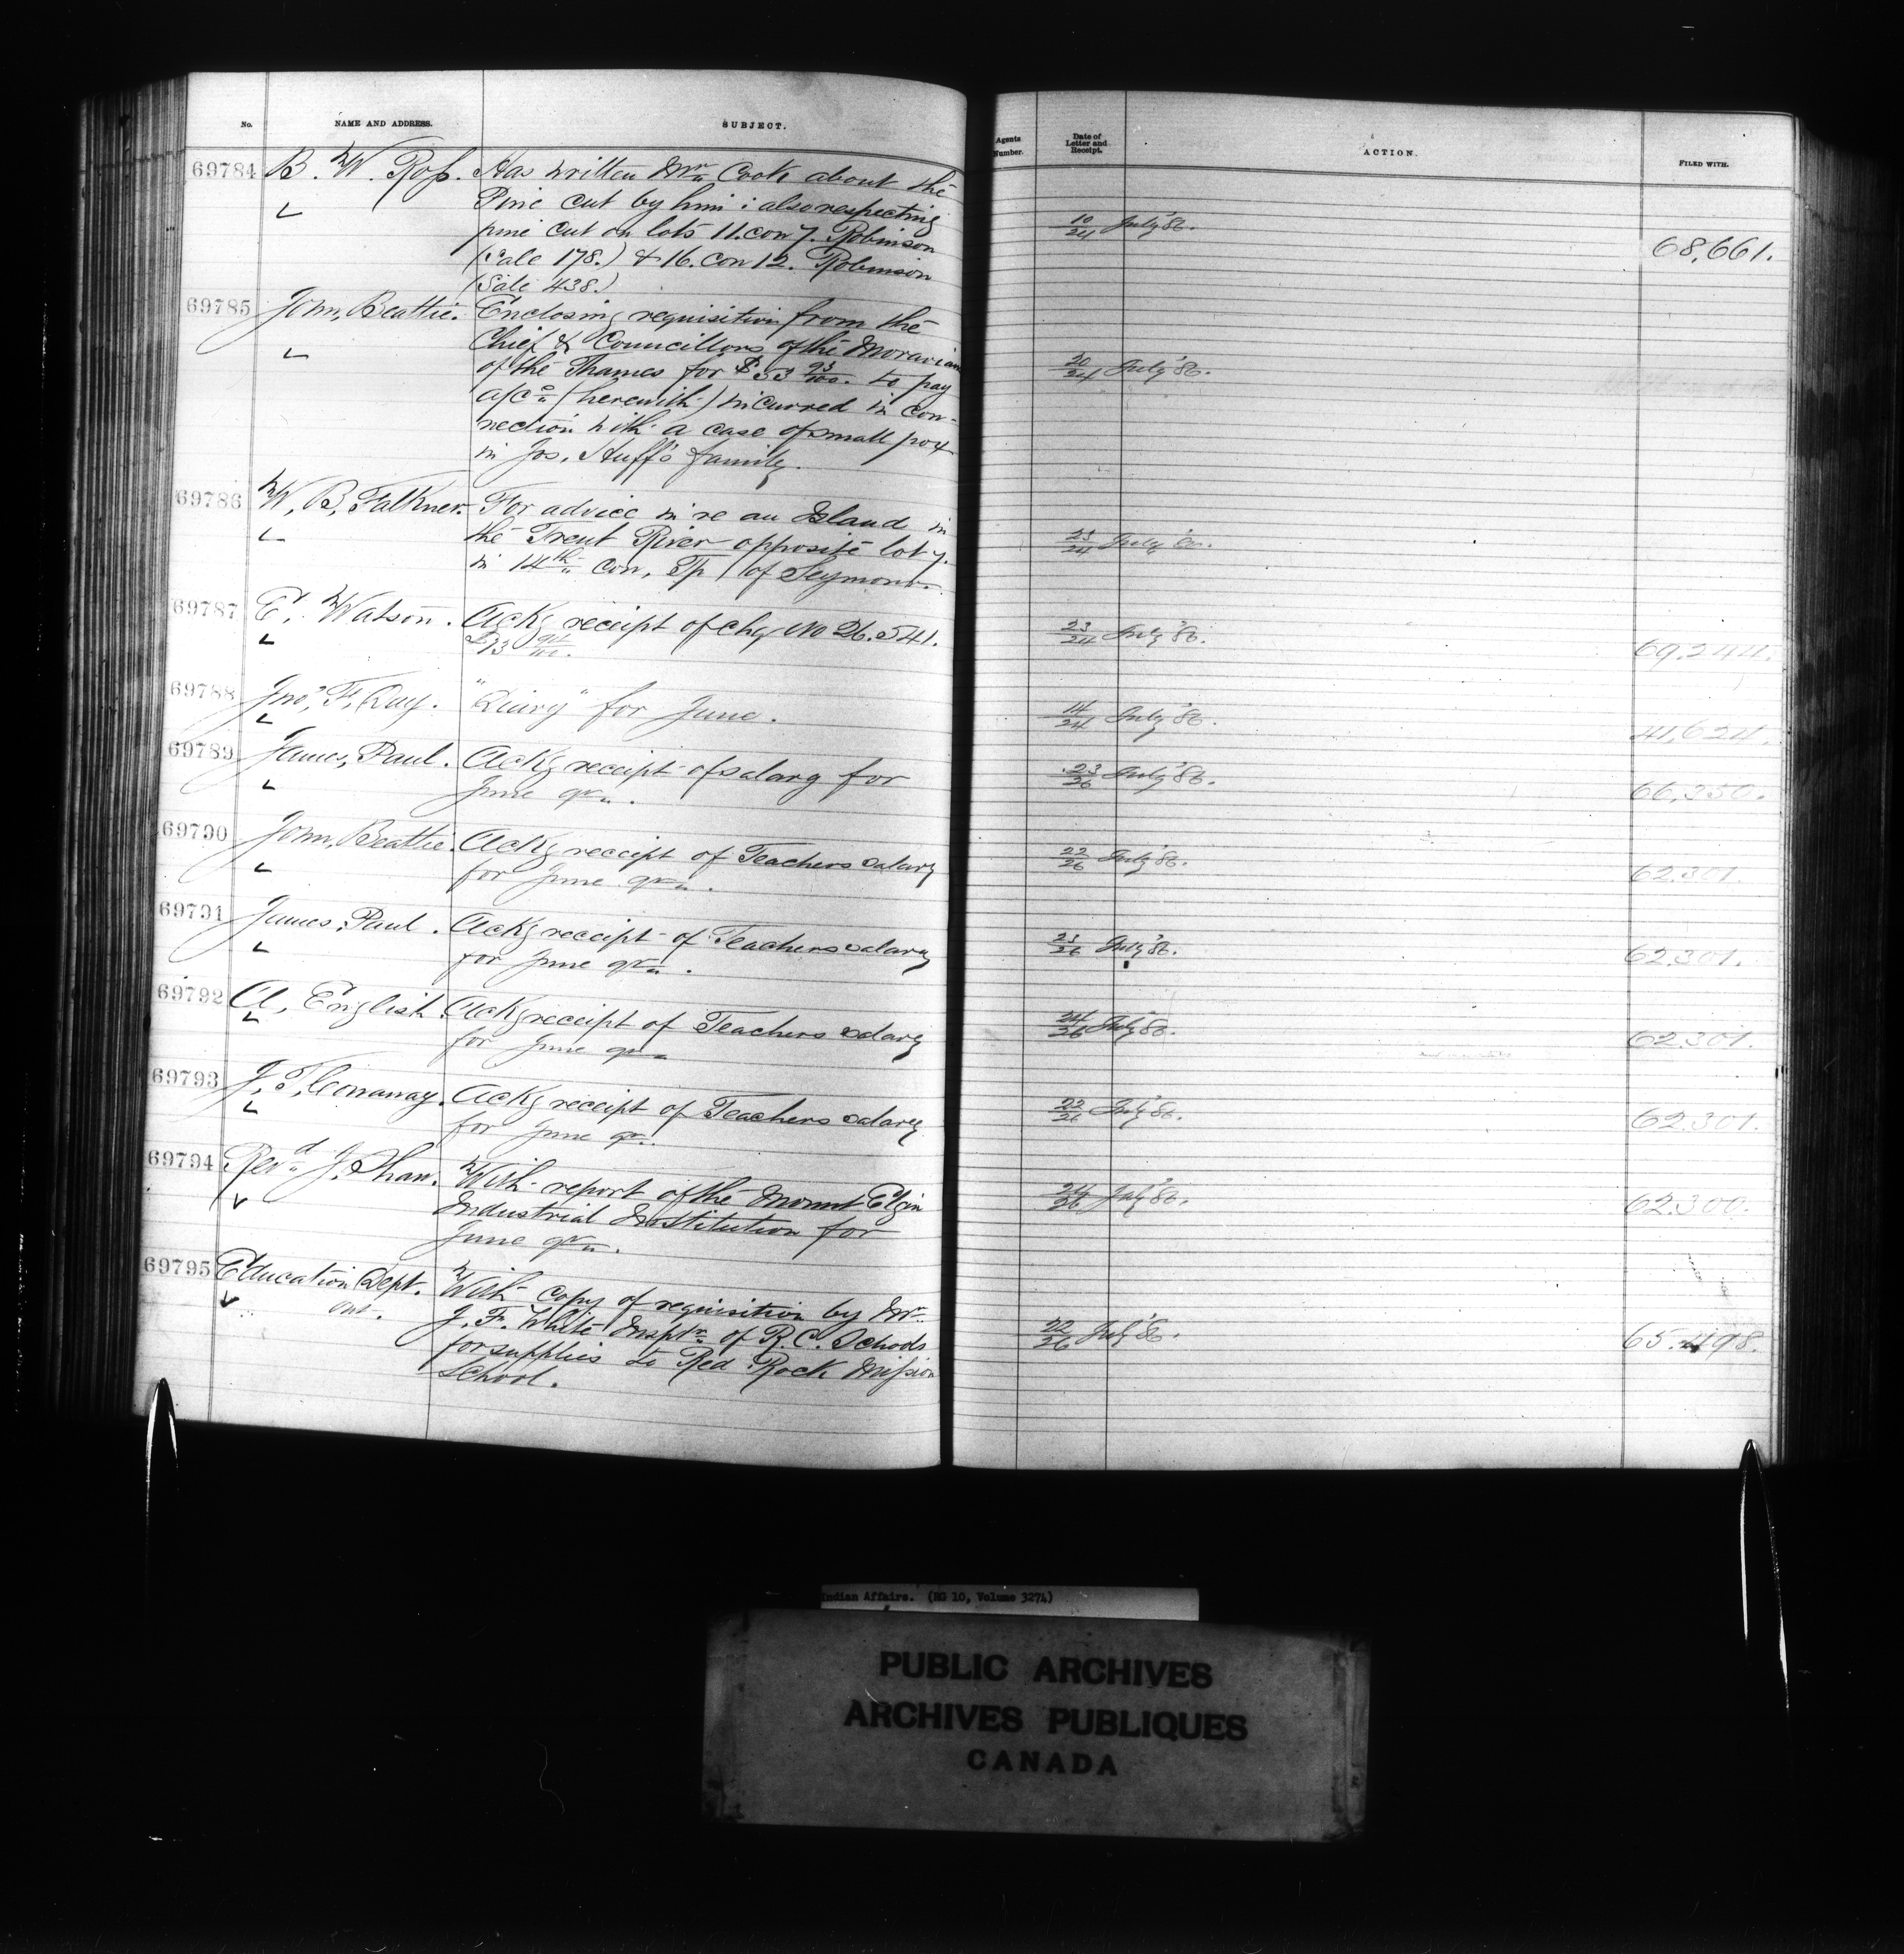 No. NAME AND ADDRESS. SUBJECT.
69784 B. W. Ross. Has written Mr. Cook about the
Pine cut by him: also respecting
pine cut on lots 11. con 7. Robinson
(Sale 178.) & 16. con 12. Robinson
(Sale 438.)
69785 John, Beattie. Enclosing requisition from the
Chief & Councillors of the Moravian
of the Thames for $53 93/100. to pay
a/cs (herewith) incurred in con-
nection with a case of small pox
in Jos, Huff's family.
69786 W, B, Falkner. For advice in re an Island in
the Trent River opposite lot 7.
in 14th con, Tp of Seymour.
69787 E, Watson. Ackg receipt of chq No 26.541.
69788 Jno, F, Day. "Diary" for June.
69789 James, Paul. Ackg receipt of salary for
June qr.
69790 John, Beattie. Ackg receipt of Teachers salary
for June qr.
69791 James, Paul. Ackg receipt of Teachers salary
for June qr.
69792 A, English. Ackg receipt of Teachers salary
for June qr
69793 J, T, Conaway. Ackg receipt of Teachers salary
for June qr.
69794 Revd J. Shaw. With report of the Mount Elgin
Industrial Institution for
June qr.
69795 Education Dept. With copy of requisition by Mr
Ont. J. F. White Insptr of R. C. Schools
for supplies to Red Rock Mission
School.
Agents Number. Date of Letter and Receipt. ACTION. FILED WITH.
10/24 July '86. 68,661.
20/24 July '86.
23/24 July '86.
23/24 July '86. 69.244.
14/24 July '86. 41,624.
23/26 July '86. 66,350.
22/26 July '86. 62.301.
23/26 July '86. 62.301.
24/26 July '86. 62.301.
22/26 July '86. 62.301.
24/26 July '86. 62.300.
22/26 July '86. 65.498.
Indian Affairs. (RG 10, Volume 3274)
PUBLIC ARCHIVES
ARCHIVES PUBLIQUES
CANADA